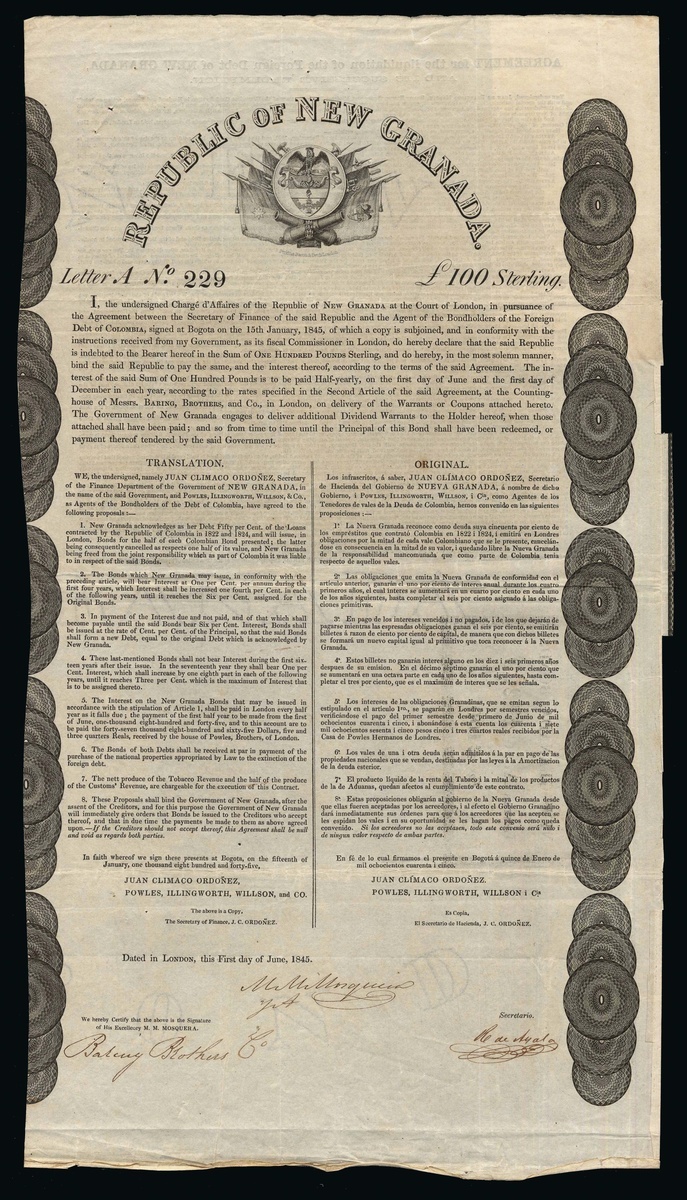 REPUBLIC OF NEW GRANADA.
Letter A No. 229
£100 Sterling.
I, the undersigned Chargé d'Affaires of the Republic of NEW GRANADA at the Court of London, in pursuance of
the Agreement between the Secretary of Finance of the said Republic and the Agent of the Bondholders of the Foreign
Debt of COLOMBIA, signed at Bogota on the 15th January, 1845, of which a copy is subjoined, and in conformity with the
instructions received from my Government, as its fiscal Commissioner in London, do hereby declare that the said Republic
is indebted to the Bearer hereof in the Sum of ONE HUNDRED POUNDS Sterling, and do hereby, in the most solemn manner,
bind the said Republic to pay the same, and the interest thereof, according to the terms of the said Agreement. The in-
terest of the said Sum of One Hundred Pounds is to be paid Half-yearly, on the first day of June and the first day of
December in each year, according to the rates specified in the Second Article of the said Agreement, at the Counting-
house of Messrs. BARING, BROTHERS, and Co., in London, on delivery of the Warrants or Coupons attached hereto.
The Government of New Granada engages to deliver additional Dividend Warrants to the Holder hereof, when those
attached shall have been paid; and so from time to time until the Principal of this Bond shall have been redeemed, or
payment thereof tendered by the said Government.
TRANSLATION.
WE, the undersigned, namely JUAN CLIMACO ORDOÑEZ, Secretary
of the Finance Department of the Government of NEW GRANADA, in
the name of the said Government, and POWLES, ILLINGWORTH, WILLSON, & CO.,
as Agents of the Bondholders of the Debt of Colombia, have agreed to the
following proposals:—
1. New Granada acknowledges as her Debt Fifty per Cent. of the Loans
contracted by the Republic of Colombia in 1822 and 1824, and will issue, in
London, Bonds for the half of each Colombian Bond presented; the latter
being consequently cancelled as respects one half of its value, and New Granada
being freed from the joint responsibility which as part of Colombia it was liable
to in respect of the said Bonds.
2. The Bonds which New Granada may issue, in conformity with the
preceding article, will bear Interest at One per Cent. per annum during the
first four years, which Interest shall be increased one fourth per Cent. in each
of the following years, until it reaches the Six per Cent. assigned for the
Original Bonds.
3. In payment of the Interest due and not paid, and of that which shall
become payable until the said Bonds bear Six per Cent. Interest, Bonds shall
be issued at the rate of Cent. per Cent. of the Principal, so that the said Bonds
shall form a new Debt, equal to the original Debt which is acknowledged by
New Granada.
4. These last-mentioned Bonds shall not bear Interest during the first six-
teen years after their issue. In the seventeenth year they shall bear One per
Cent. Interest, which shall increase by one eighth part in each of the following
years, until it reaches Three per Cent. which is the maximum of Interest that
is to be assigned thereto.
5. The Interest on the New Granada Bonds that may be issued in
accordance with the stipulation of Article 1, shall be paid in London every half
year as it falls due; the payment of the first half year to be made from the first
of June, one-thousand eight-hundred and forty-five, and to this account are to
be paid the forty-seven thousand eight-hundred and sixty-five Dollars, five and
three quarters Reals, received by the house of Powles, Brothers, of London.
6. The Bonds of both Debts shall be received at par in payment of the
purchase of the national properties appropriated by Law to the extinction of the
foreign debt.
7. The nett produce of the Tobacco Revenue and the half of the produce
of the Customs' Revenue, are chargeable for the execution of this Contract.
8. These Proposals shall bind the Government of New Granada, after the
assent of the Creditors, and for this purpose the Government of New Granada
will immediately give orders that Bonds be issued to the Creditors who accept
thereof, and that in due time the payments be made to them as above agreed
upon.—If the Creditors should not accept thereof, this Agreement shall be null
and void as regards both parties.
In faith whereof we sign these presents at Bogota, on the fifteenth of
January, one thousand eight hundred and forty-five,
JUAN CLIMACO ORDOÑEZ,
POWLES, ILLINGWORTH, WILLSON, and CO.
The above is a Copy,
The Secretary of Finance, J. C. ORDOÑEZ.
ORIGINAL.
Los infrascritos, á saber, JUAN CLÍMACO ORDOÑEZ, Secretario
de Hacienda del Gobierno de NUEVA GRANADA, á nombre de dicho
Gobierno, i POWLES, ILLINGWORTH, WILLSON, i Ca, como Agentes de los
Tenedores de vales de la Deuda de Colombia, hemos convenido en las siguientes
proposiciones:—
1a La Nueva Granada reconoce como deuda suya cincuenta por ciento de
los empréstitos que contrató Colombia en 1822 i 1824, i emitirá en Londres
obligaciones por la mitad de cada vale Colombiano que se le presente, cancelán-
dose en consecuencia en la mitad de su valor, i quedando libre la Nueva Granada
de la responsabilidad mancomunada que como parte de Colombia tenia
respecto de aquellos vales.
2a Las obligaciones que emita la Nueva Granada de conformidad con el
artículo anterior, ganarán el uno por ciento de interes anual durante los cuatro
primeros años, el cual interes se aumentará en un cuarto por ciento en cada uno
de los años siguientes, hasta completar el seis por ciento asignado á las obliga-
ciones primitivas.
3a En pago de los intereses vencidos i no pagados, i de los que dejarán de
pagarse mientras las expresadas obligaciones ganan el seis por ciento, se emitirán
billetes á razon de ciento por ciento de capital, de manera que con dichos billetes
se formará un nuevo capital igual al primitivo que toca reconocer á la Nueva
Granada.
4a Estos billetes no ganarán interes alguno en los diez i seis primeros años
despues de su emision. En el décimo séptimo ganarán el uno por ciento que
se aumentará en una octava parte en cada uno de los años siguientes, hasta com-
pletar el tres por ciento, que es el maximum de interes que se les señala.
5a Los intereses de las obligaciones Granadinas, que se emitan segun lo
estipulado en el artículo 1o, se pagarán en Londres por semestres vencidos,
verificándose el pago del primer semestre desde primero de Junio de mil
ochocientos cuarenta i cinco, i abonándose á esta cuenta los cuarenta i siete
mil ochocientos sesenta i cinco pesos cinco i tres cuartos reales recibidos por la
Casa de Powles Hermanos de Londres.
6a Los vales de una i otra deuda serán admitidos á la par en pago de las
propiedades nacionales que se vendan, destinadas por las leyes á la Amortizacion
de la deuda esterior.
7a El producto líquido de la renta del Tabaco i la mitad de los productos
de la de Aduanas, quedan afectos al cumplimiento de este contrato.
8a Estas proposiciones obligarán al gobierno de la Nueva Granada desde
que ellas fueren aceptadas por los acreedores, i al efecto el Gobierno Granadino
dará inmediatamente sus órdenes para que á los acreedores que las acepten se
les espidan los vales i en su oportunidad se les hagan los pagos como queda
convenido. Si los acreedores no las aceptasen, todo este convenio será nulo i
de ningun valor respecto de ambas partes.
En fé de lo cual firmamos el presente en Bogotá á quince de Enero de
mil ochocientos cuarenta i cinco.
JUAN CLÍMACO ORDOÑEZ.
POWLES, ILLINGWORTH, WILLSON i Ca
Es Copia,
El Secretario de Hacienda, J. C. ORDOÑEZ.
Dated in LONDON, this First day of June, 1845.
M M Mosquera
We hereby Certify that the above is the Signature
of His Excellency M. M. MOSQUERA.
Baring Brothers & Co
Secretario.
R de Ayala